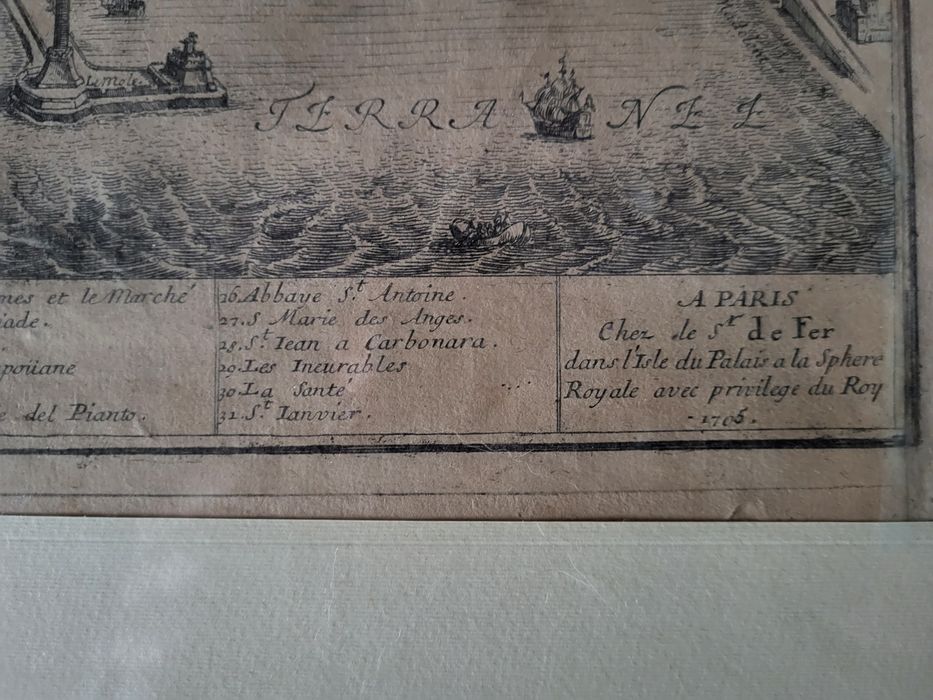 Le Mole
TERRA NEE
mes et le Marché
iade.
apoüane
e del Pianto.
26. Abbaye S.t Antoine.
27. S Marie des Anges.
28. S.t Iean a Carbonara.
29. Les Incurables
30. La Santé
31. S.t Ianvier.
A PARIS
Chez le S.r de Fer
dans l'Isle du Palais a la Sphere
Royale avec privilege du Roy
1705.